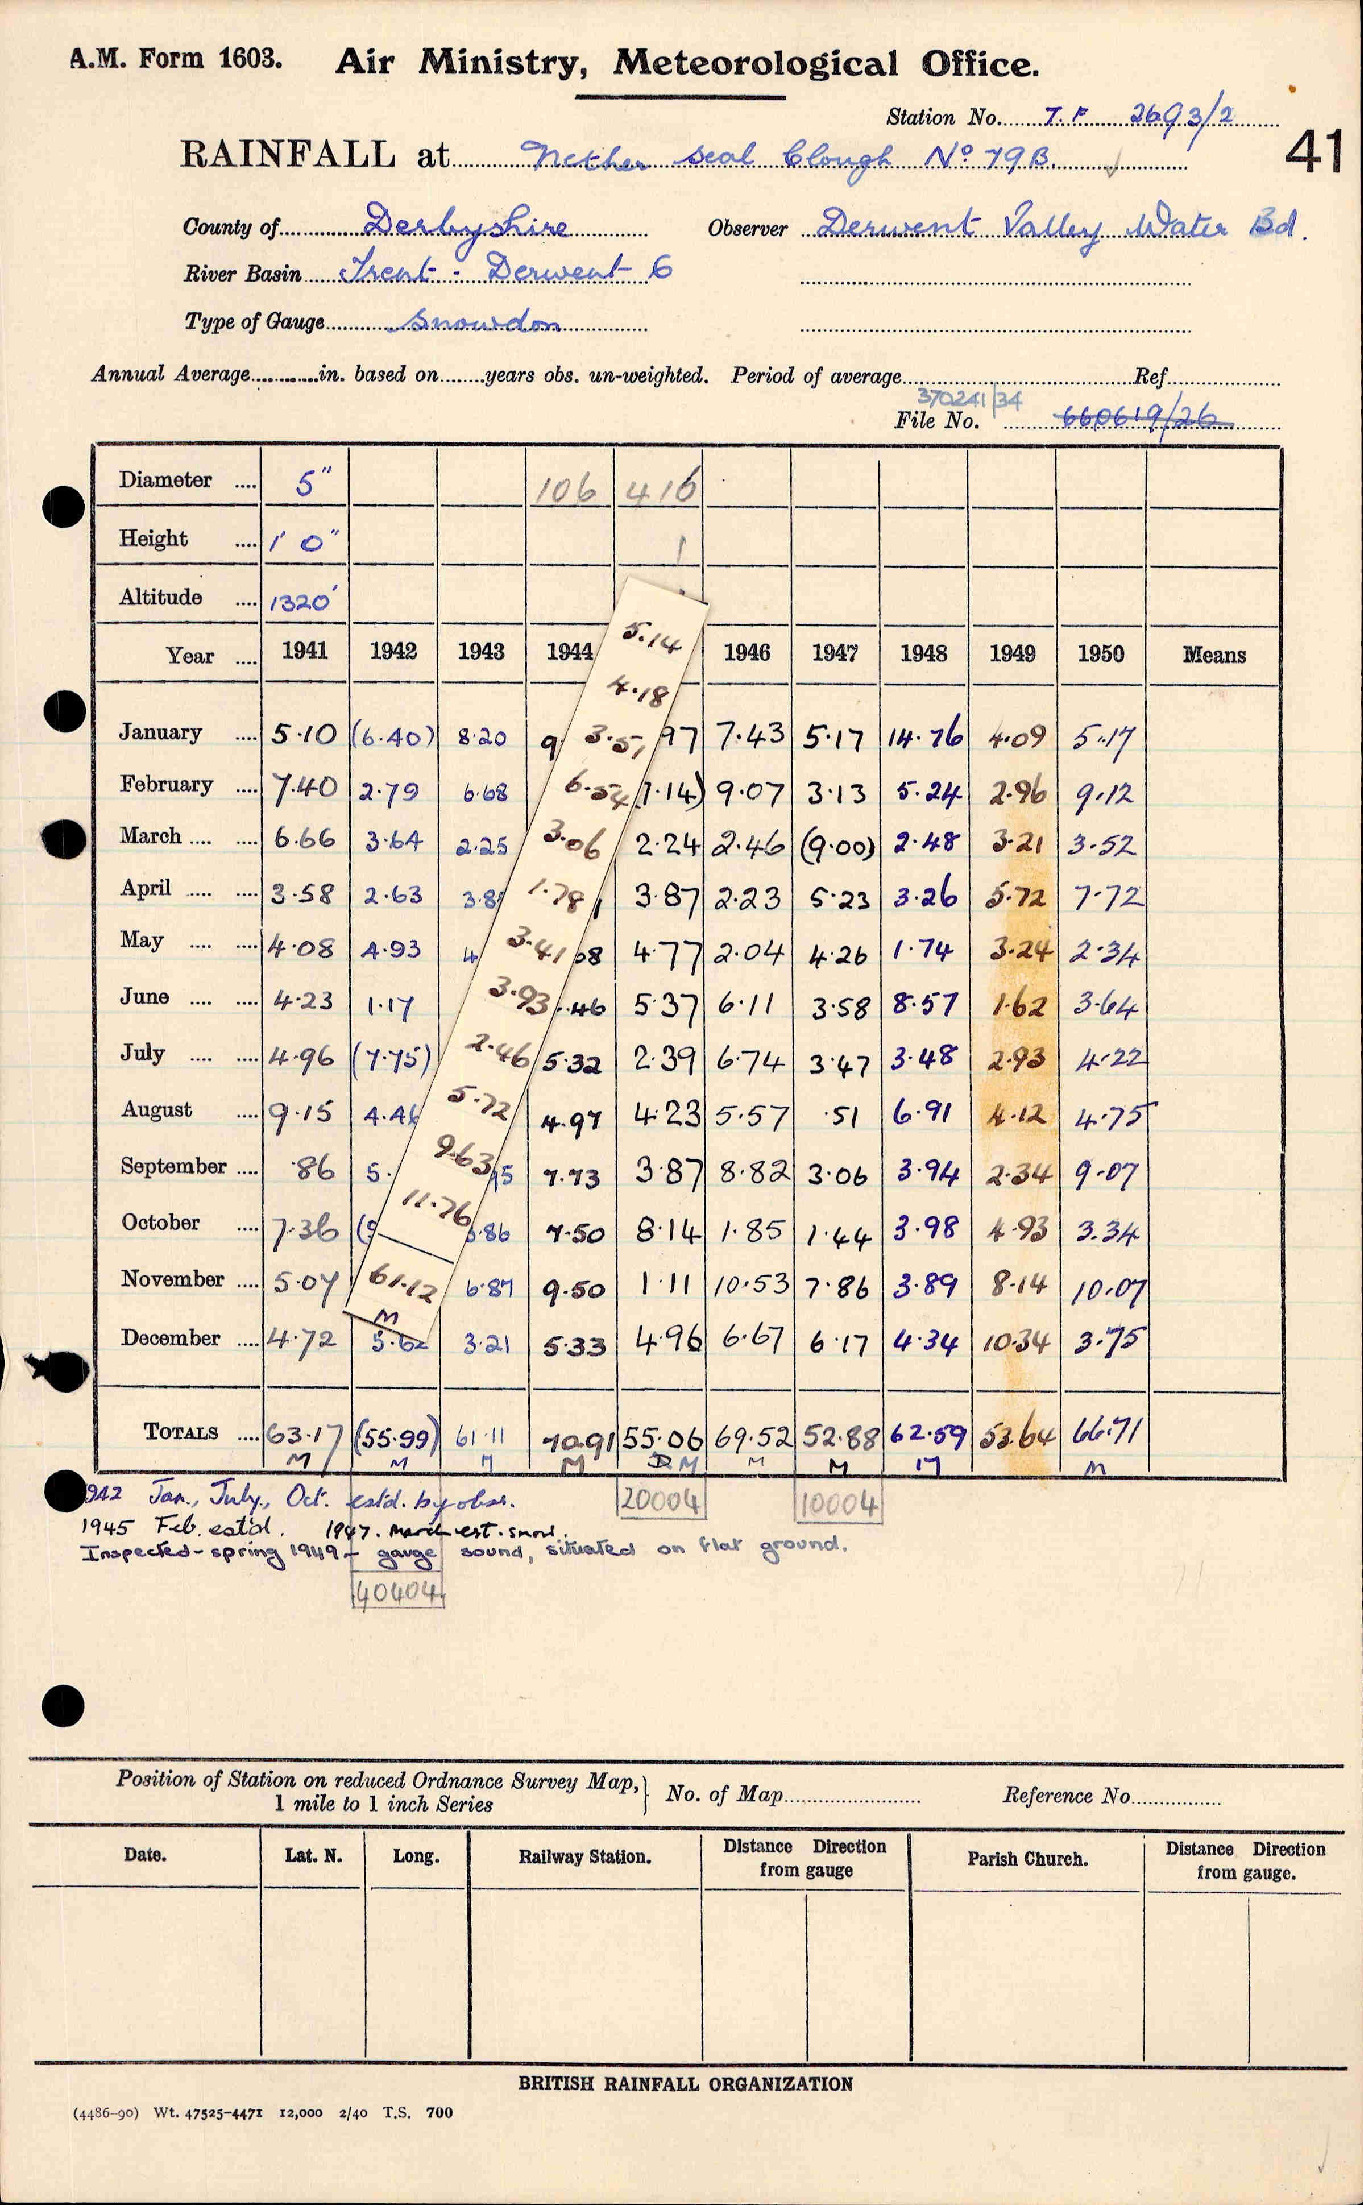 A.M. Form 1603. Air Ministry, Meteorological Office.
Station No. T.P. 2693/2
41
RAINFALL at Nether Seal Clough No 79B.
County of Derbyshire Observer Derwent Valley Water Bd.
River Basin Trent - Derwent 6
Type of Gauge Snowdon
Annual Average............in. based on........years obs. un-weighted. Period of average Ref
370241/34
File No. 660619/26
Diameter .... 5" 106 416
Height .... 1' 0"
Altitude .... 1320'
Year .... 1941 1942 1943 1944 1946 1947 1948 1949 1950 Means
January .... 5.10 (6.40) 8.20 9 97 7.43 5.17 14.76 4.09 5.17
February .... 7.40 2.79 6.68 7.14) 9.07 3.13 5.24 2.96 9.12
March .... .... 6.66 3.64 2.25 2.24 2.46 (9.00) 2.48 3.21 3.52
April .... .... 3.58 2.63 3.8 3.87 2.23 5.23 3.26 5.72 7.72
May .... .... 4.08 4.93 4 68 4.77 2.04 4.26 1.74 3.24 2.34
June .... .... 4.23 1.17 .46 5.37 6.11 3.58 8.57 1.62 3.64
July .... .... 4.96 (7.75) 5.32 2.39 6.74 3.47 3.48 2.93 4.22
August .... 9.15 4.46 4.97 4.23 5.57 .51 6.91 4.12 4.75
September .... .86 5. 5 7.73 3.87 8.82 3.06 3.94 2.34 9.07
October .... 7.36 3.86 7.50 8.14 1.85 1.44 3.98 4.93 3.34
November .... 5.07 6.87 9.50 1.11 10.53 7.86 3.89 8.14 10.07
December .... 4.72 5.62 3.21 5.33 4.96 6.67 6.17 4.34 10.34 3.75
TOTALS .... 63.17 (55.99) 61.11 70.91 55.06 69.52 52.88 62.59 53.64 66.71
M M M M D M M M M M
5.14
4.18
3.51
6.54
3.06
1.78
3.41
3.93
2.46
5.72
9.63
11.76
61.12
M
20004 10004
942 Jan., July., Oct. estd. by obsr.
1945 Feb. estd. 1947. March est. snow.
Inspected - spring 1949 - gauge sound, situated on flat ground.
40404
Position of Station on reduced Ordnance Survey Map, 1 mile to 1 inch Series No. of Map Reference No.
Date. Lat. N. Long. Railway Station. Distance Direction from gauge Parish Church. Distance Direction from gauge.
BRITISH RAINFALL ORGANIZATION
(4486-90) Wt. 47525-4471 12,000 2/40 T.S. 700